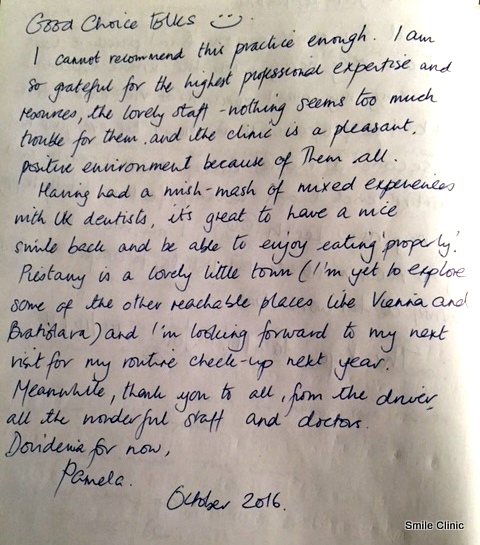 Good Choice Folks :-).
I cannot recommend this practice enough. I am
so grateful for the highest professional expertise and
resources, the lovely staff - nothing seems too much
trouble for them, and the clinic is a pleasant,
positive environment because of them all.
Having had a mish-mash of mixed experiences
with UK dentists, it's great to have a nice
smile back and be able to enjoy eating 'properly'.
Piestany is a lovely little town (I'm yet to explore
some of the other reachable places like Vienna and
Bratislava) and I'm looking forward to my next
visit for my routine check-up next year.
Meanwhile, thank you to all, from the driver,
all the wonderful staff and doctors.
Dovidenia for now,
Pamela.
October 2016.
Smile Clinic